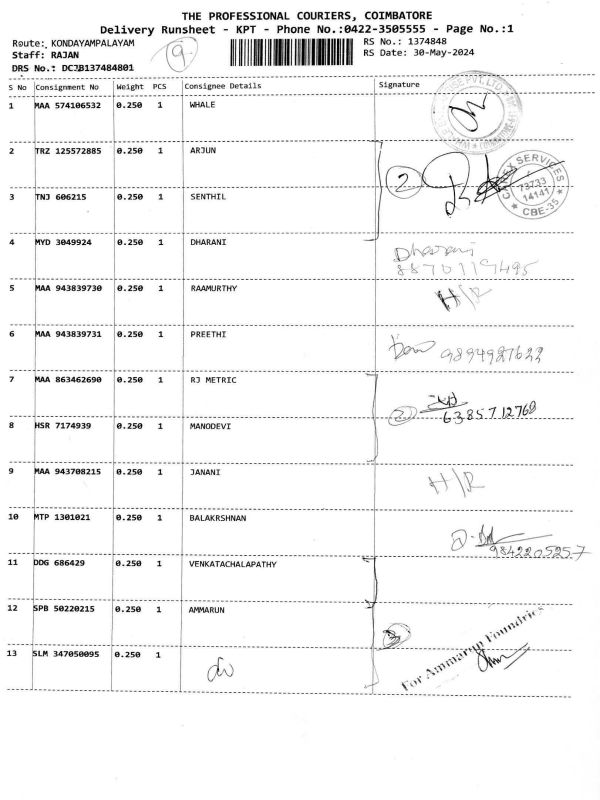 THE PROFESSIONAL COURIERS, COIMBATORE
Delivery Runsheet - KPT - Phone No.:0422-3505555 - Page No.:1
Route: KONDAYAMPALAYAM
Staff: RAJAN
DRS No.: DCJB137484801
9
RS No.: 1374848
RS Date: 30-May-2024
S No Consignment No Weight PCS Consignee Details Signature
1 MAA 574106532 0.250 1 WHALE
2 TRZ 125572885 0.250 1 ARJUN
2
SERVICES
73733
14141
* CBE-35 *
3 TNJ 606215 0.250 1 SENTHIL
4 MYD 3049924 0.250 1 DHARANI
Dharani
8870119495
5 MAA 943839730 0.250 1 RAAMURTHY
H/R
6 MAA 943839731 0.250 1 PREETHI
9894927622
7 MAA 863462690 0.250 1 RJ METRIC
2
6385712768
8 HSR 7174939 0.250 1 MANODEVI
9 MAA 943708215 0.250 1 JANANI
H/R
10 MTP 1301021 0.250 1 BALAKRSHNAN
9842205257
11 DDG 686429 0.250 1 VENKATACHALAPATHY
12 SPB 50220215 0.250 1 AMMARUN
3
For Ammarun Foundries
13 SLM 347050095 0.250 1
do